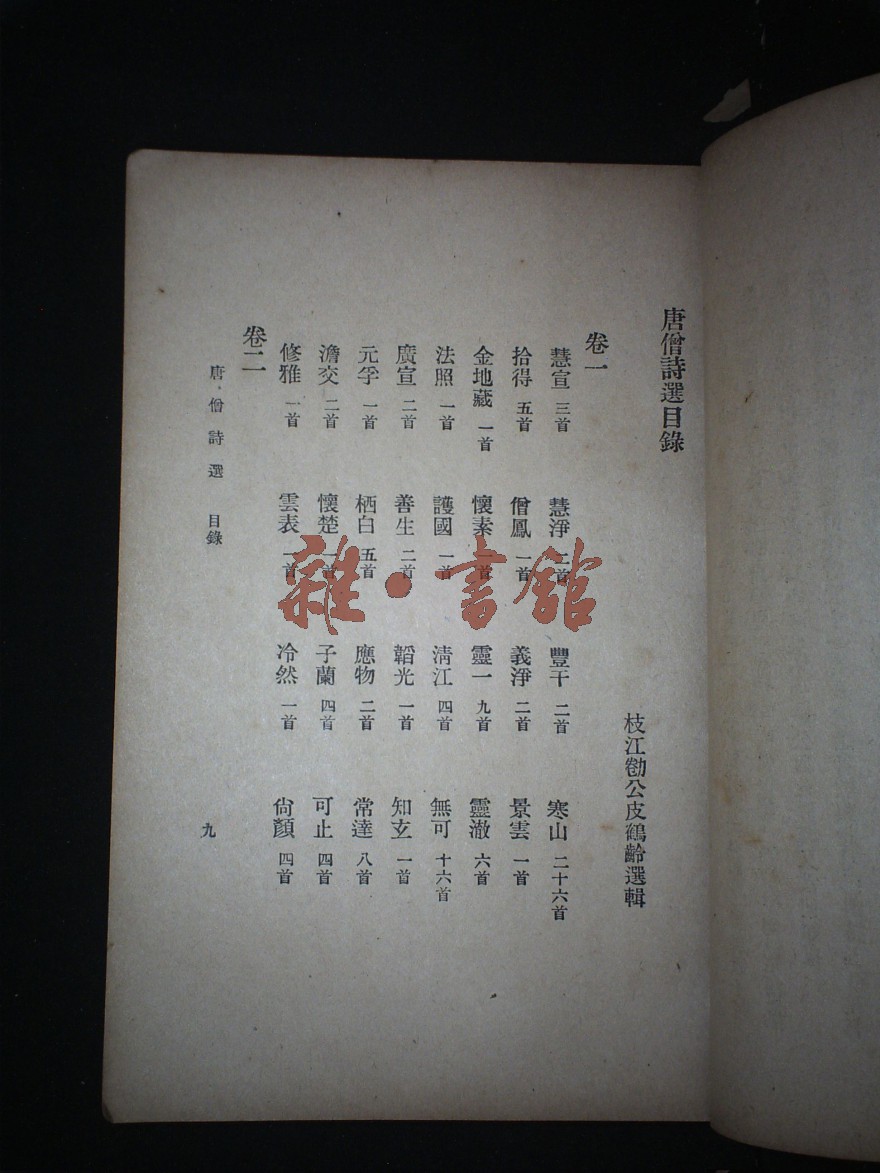 唐僧詩選目錄
枝江勌公皮鶴齡選輯
卷一
慧宣 三首 慧淨 二首 豐干 二首 寒山 二十六首
拾得 五首 僧鳳 一首 義淨 二首 景雲 一首
金地藏 一首 懷素 一首 靈一 九首 靈澈 六首
法照 一首 護國 一首 清江 四首 無可 十六首
廣宣 二首 善生 二首 韜光 一首 知玄 一首
元孚 一首 栖白 五首 應物 二首 常達 八首
澹交 二首 懷楚 一首 子蘭 四首 可止 四首
修雅 一首 雲表 一首 冷然 一首 尙顏 四首
卷二
唐僧詩選 目錄
九
雜·書館